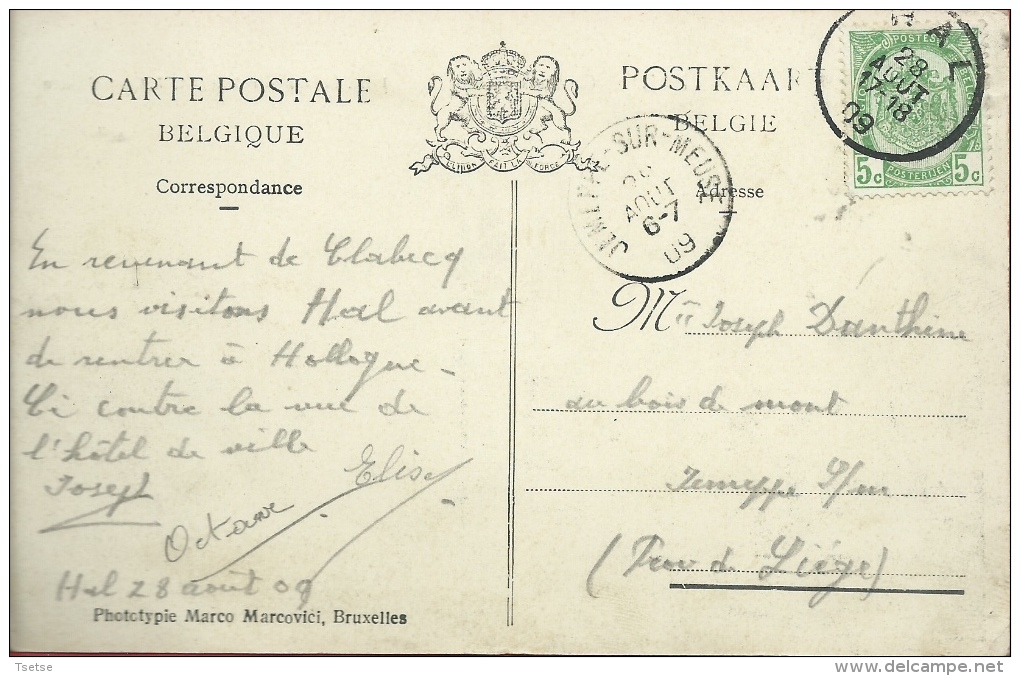 CARTE POSTALE
BELGIQUE
Correspondance
POSTKAART
BELGIE
Adresse
L'UNION FAIT LA FORCE
HAL
28
AOUT
17-18
09
POSTES
POSTERIJEN
5c 5c
JEMEPPE-SUR-MEUSE
AOUT
6-7
09
En revenant de Clabecq
nous visitons Hal avant
de rentrer à Hollogne -
Ci contre la vue de
l'hôtel de ville
Joseph
Elise
Octave
Hal 28 août 09
Phototypie Marco Marcovici, Bruxelles
M Joseph Danthine
au bois de mont
Jemeppe S/m
(Prov de Liége)
Tsetse
delcampe.net